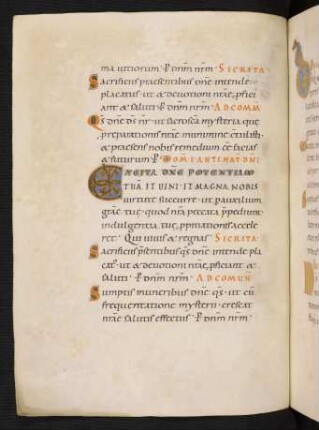 ma uitiorum · P dnm nrm · SECRETA
Sacrificiis praesentibus dne intende
placatus · ut & deuotioni nrae, pfici
ant & saluti · P dnm nrm · AD COMM
Qs dne ds nr · ut sacrosca mysteria que
p reparationis nrae munimine contulisti ·
& praesens nobis remedium ee facias
& futurum · P DOM I ANTE NAT DNI
EXCITA DNE POTENTIAM
TUA · ET UENI · ET MAGNA NOBIS
uirtute succurre · ut p auxilium
gratiae tuae quod nra peccata p pediunt
indulgentia tuae p pitiationis accele
ret · Qui uiuis & regnas SECRETA ·
Sacrificiis psentibus qs dne intende pla
catus · ut & deuotioni nrae, pficiant &
saluti · P dnm nrm · AD COMUN
Sumptis muneribus dne qs · ut cu
frequentatione mysterii · crescat
nrae salutis effectus · P dnm nrm ·